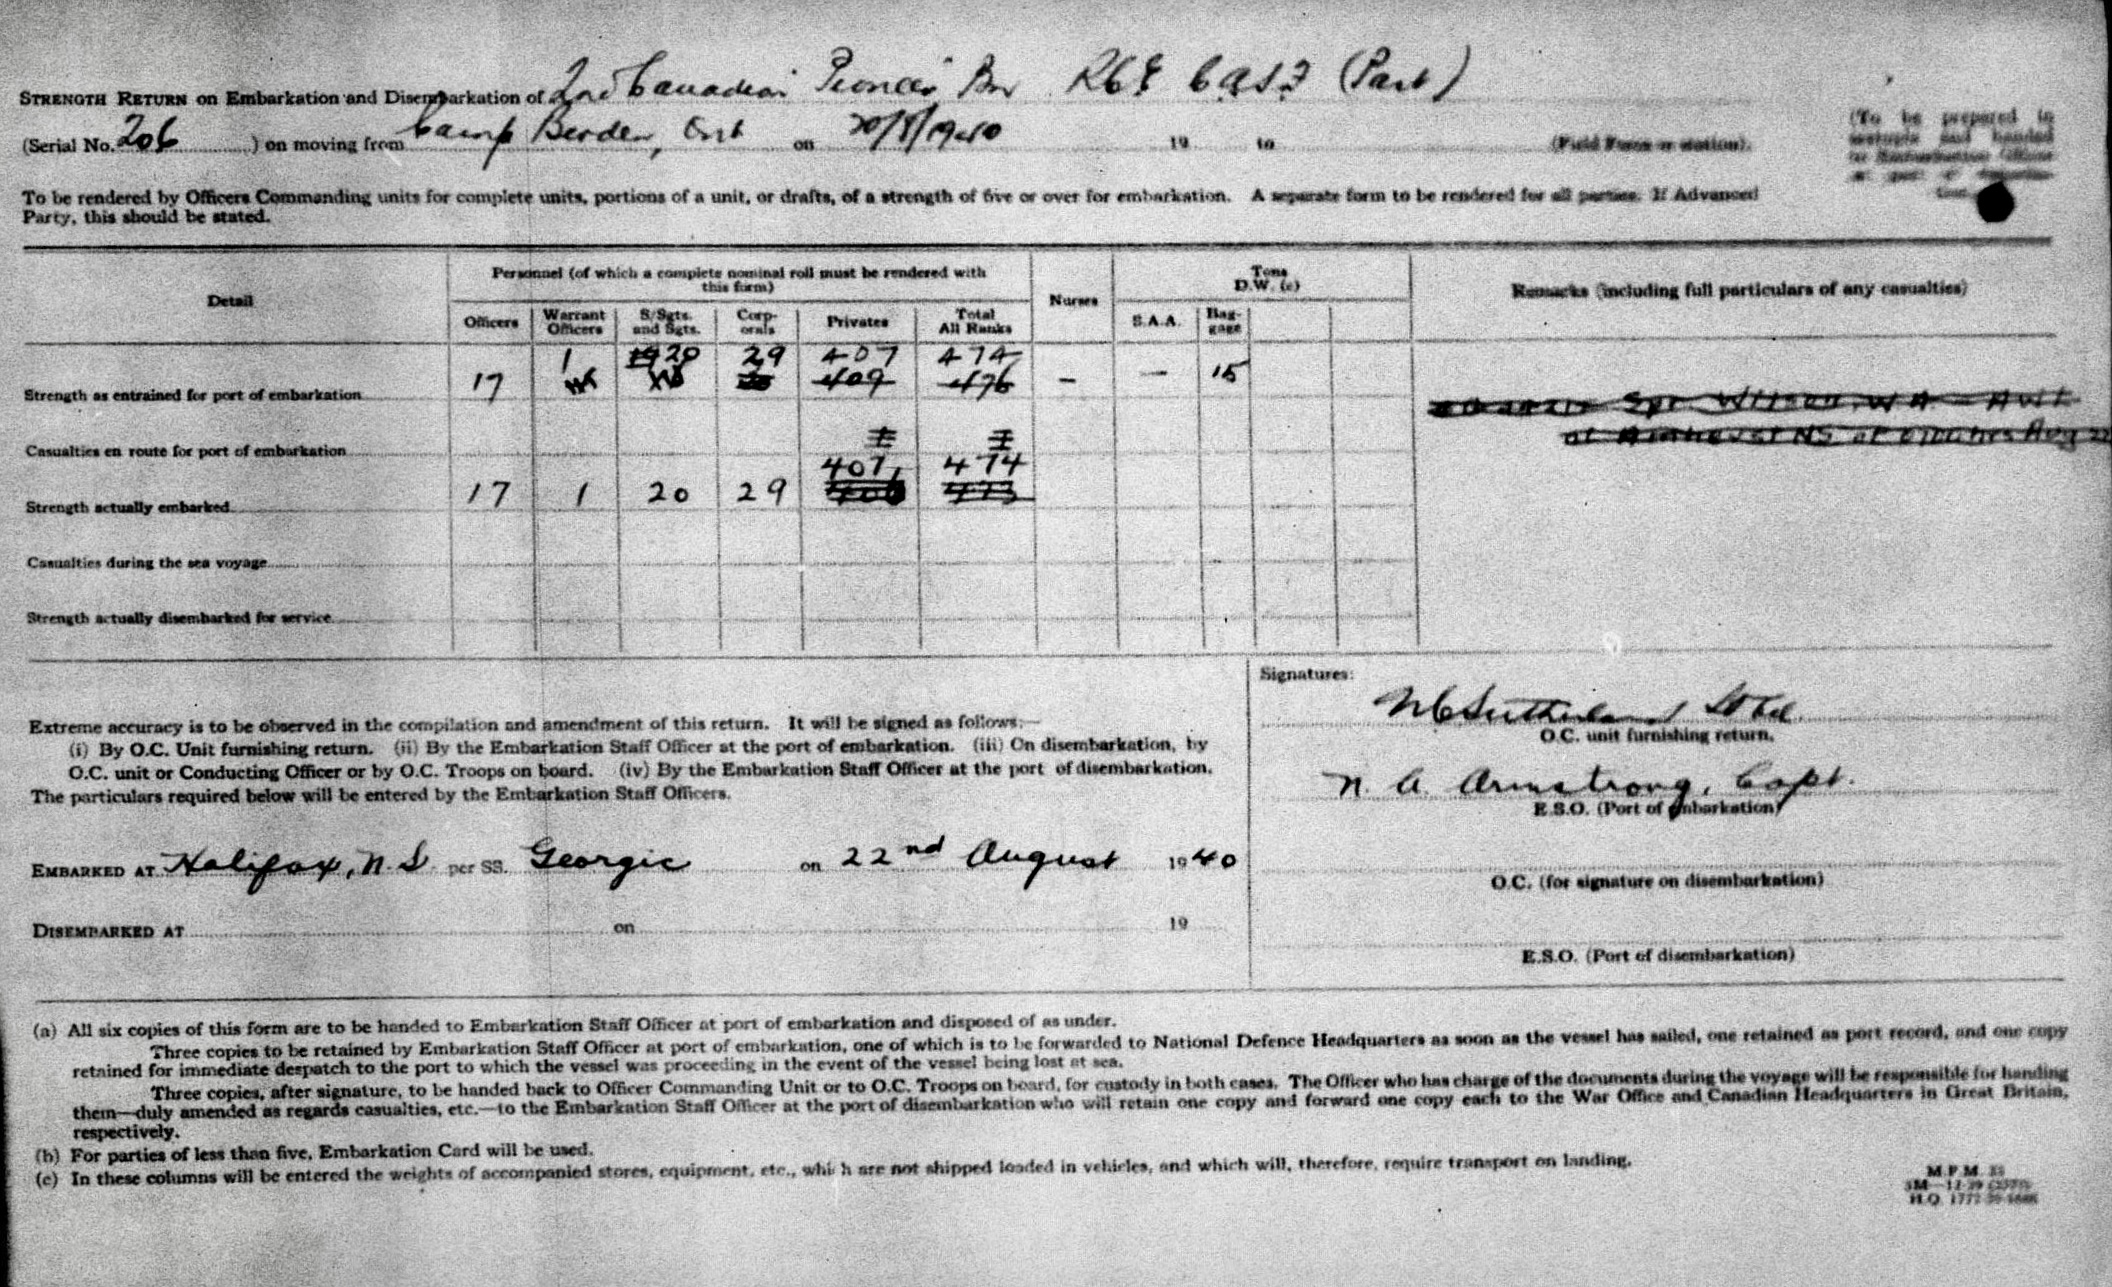 STRENGTH RETURN on Embarkation and Disembarkation of 2nd Canadian Pioneer Bn RCE CASF (Part)
(Serial No. 206 ) on moving from Camp Borden, Ont on 20/8/1940 19 to (Field Force or station).
(To be prepared in
To be rendered by Officers Commanding units for complete units, portions of a unit, or drafts, of a strength of five or over for embarkation. A separate form to be rendered for all parties. If Advanced
Party, this should be stated.
Detail
Personnel (of which a complete nominal roll must be rendered with
this form)
Officers
Warrant
Officers
S/Sgts.
and Sgts.
Corp-
orals
Privates
Total
All Ranks
Nurses
Tons
D.W. (c)
S.A.A.
Bag-
gage
Remarks (including full particulars of any casualties)
1 19 20 29 407 474
Strength as entrained for port of embarkation 17 409 476 — — 15
Spr Wilson, W A
at Amherst NS at Aug
Casualties en route for port of embarkation
407 474
Strength actually embarked 17 1 20 29 473
Casualties during the sea voyage
Strength actually disembarked for service
Signatures:
Sutherland
O.C. unit furnishing return.
N. A. Armstrong, Capt.
E.S.O. (Port of embarkation)
O.C. (for signature on disembarkation)
E.S.O. (Port of disembarkation)
Extreme accuracy is to be observed in the compilation and amendment of this return. It will be signed as follows:—
(i) By O.C. Unit furnishing return. (ii) By the Embarkation Staff Officer at the port of embarkation. (iii) On disembarkation, by
O.C. unit or Conducting Officer or by O.C. Troops on board. (iv) By the Embarkation Staff Officer at the port of disembarkation.
The particulars required below will be entered by the Embarkation Staff Officers.
EMBARKED AT Halifax, N.S. per SS. Georgic on 22nd August 1940
DISEMBARKED AT on 19
(a) All six copies of this form are to be handed to Embarkation Staff Officer at port of embarkation and disposed of as under.
Three copies to be retained by Embarkation Staff Officer at port of embarkation, one of which is to be forwarded to National Defence Headquarters as soon as the vessel has sailed, one retained as port record, and one copy
retained for immediate despatch to the port to which the vessel was proceeding in the event of the vessel being lost at sea.
Three copies, after signature, to be handed back to Officer Commanding Unit or to O.C. Troops on board, for custody in both cases. The Officer who has charge of the documents during the voyage will be responsible for handing
them—duly amended as regards casualties, etc.—to the Embarkation Staff Officer at the port of disembarkation who will retain one copy and forward one copy each to the War Office and Canadian Headquarters in Great Britain,
respectively.
(b) For parties of less than five, Embarkation Card will be used.
(c) In these columns will be entered the weights of accompanied stores, equipment, etc., which are not shipped loaded in vehicles, and which will, therefore, require transport on landing.
M.F.M.
H.Q. 1772